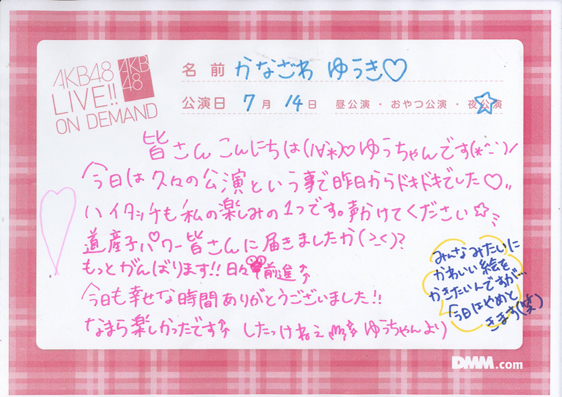 AKB48
LIVE!!
ON DEMAND
AKB
48
名前 かなざわ ゆうき♡
公演日 7月 14日 昼公演・おやつ公演・夜公演
皆さんこんにちは(ノ∀`*)♡ゆうちゃんです(*^^)ノ
今日は久々の公演という事で昨日からドキドキでした♡
ハイタッチも私の楽しみの1つです。声かけてください☆
道産子パワー皆さんに届きましたか(><)?
もっとがんばります!!日々前進♪
今日も幸せな時間ありがとうございました!!
なまら楽しかったです♪ したっけねぇ ゆうちゃんより
みんなみたいに
かわいい絵を
かきたいんですが…
今日はやめと
きます(笑)
DMM.com